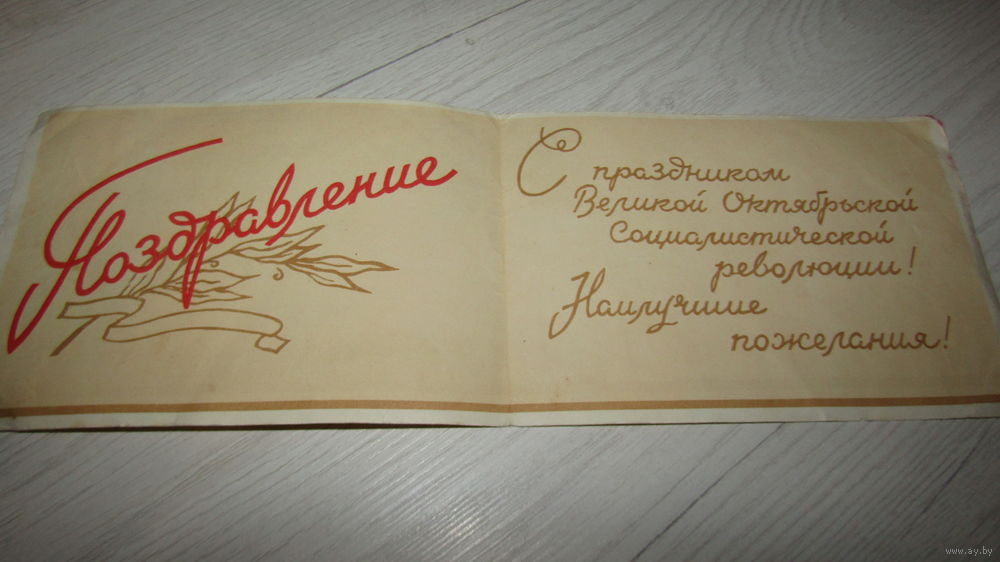 Поздравление
С праздником
Великой Октябрьской
Социалистической
революции!
Наилучшие
пожелания!
www.ay.by